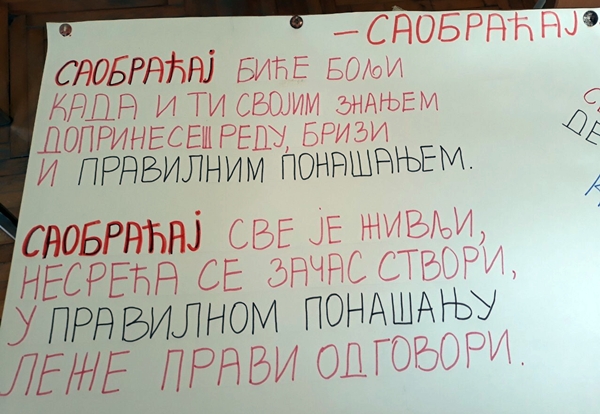 – САОБРАЋАЈ
САОБРАЋАЈ БИЋЕ БОЉИ
КАДА И ТИ СВОЈИМ ЗНАЊЕМ
ДОПРИНЕСЕШ РЕДУ, БРИЗИ
И ПРАВИЛНИМ ПОНАШАЊЕМ.
САОБРАЋАЈ СВЕ ЈЕ ЖИВЉИ,
НЕСРЕЋА СЕ ЗАЧАС СТВОРИ,
У ПРАВИЛНОМ ПОНАШАЊУ
ЛЕЖЕ ПРАВИ ОДГОВОРИ.